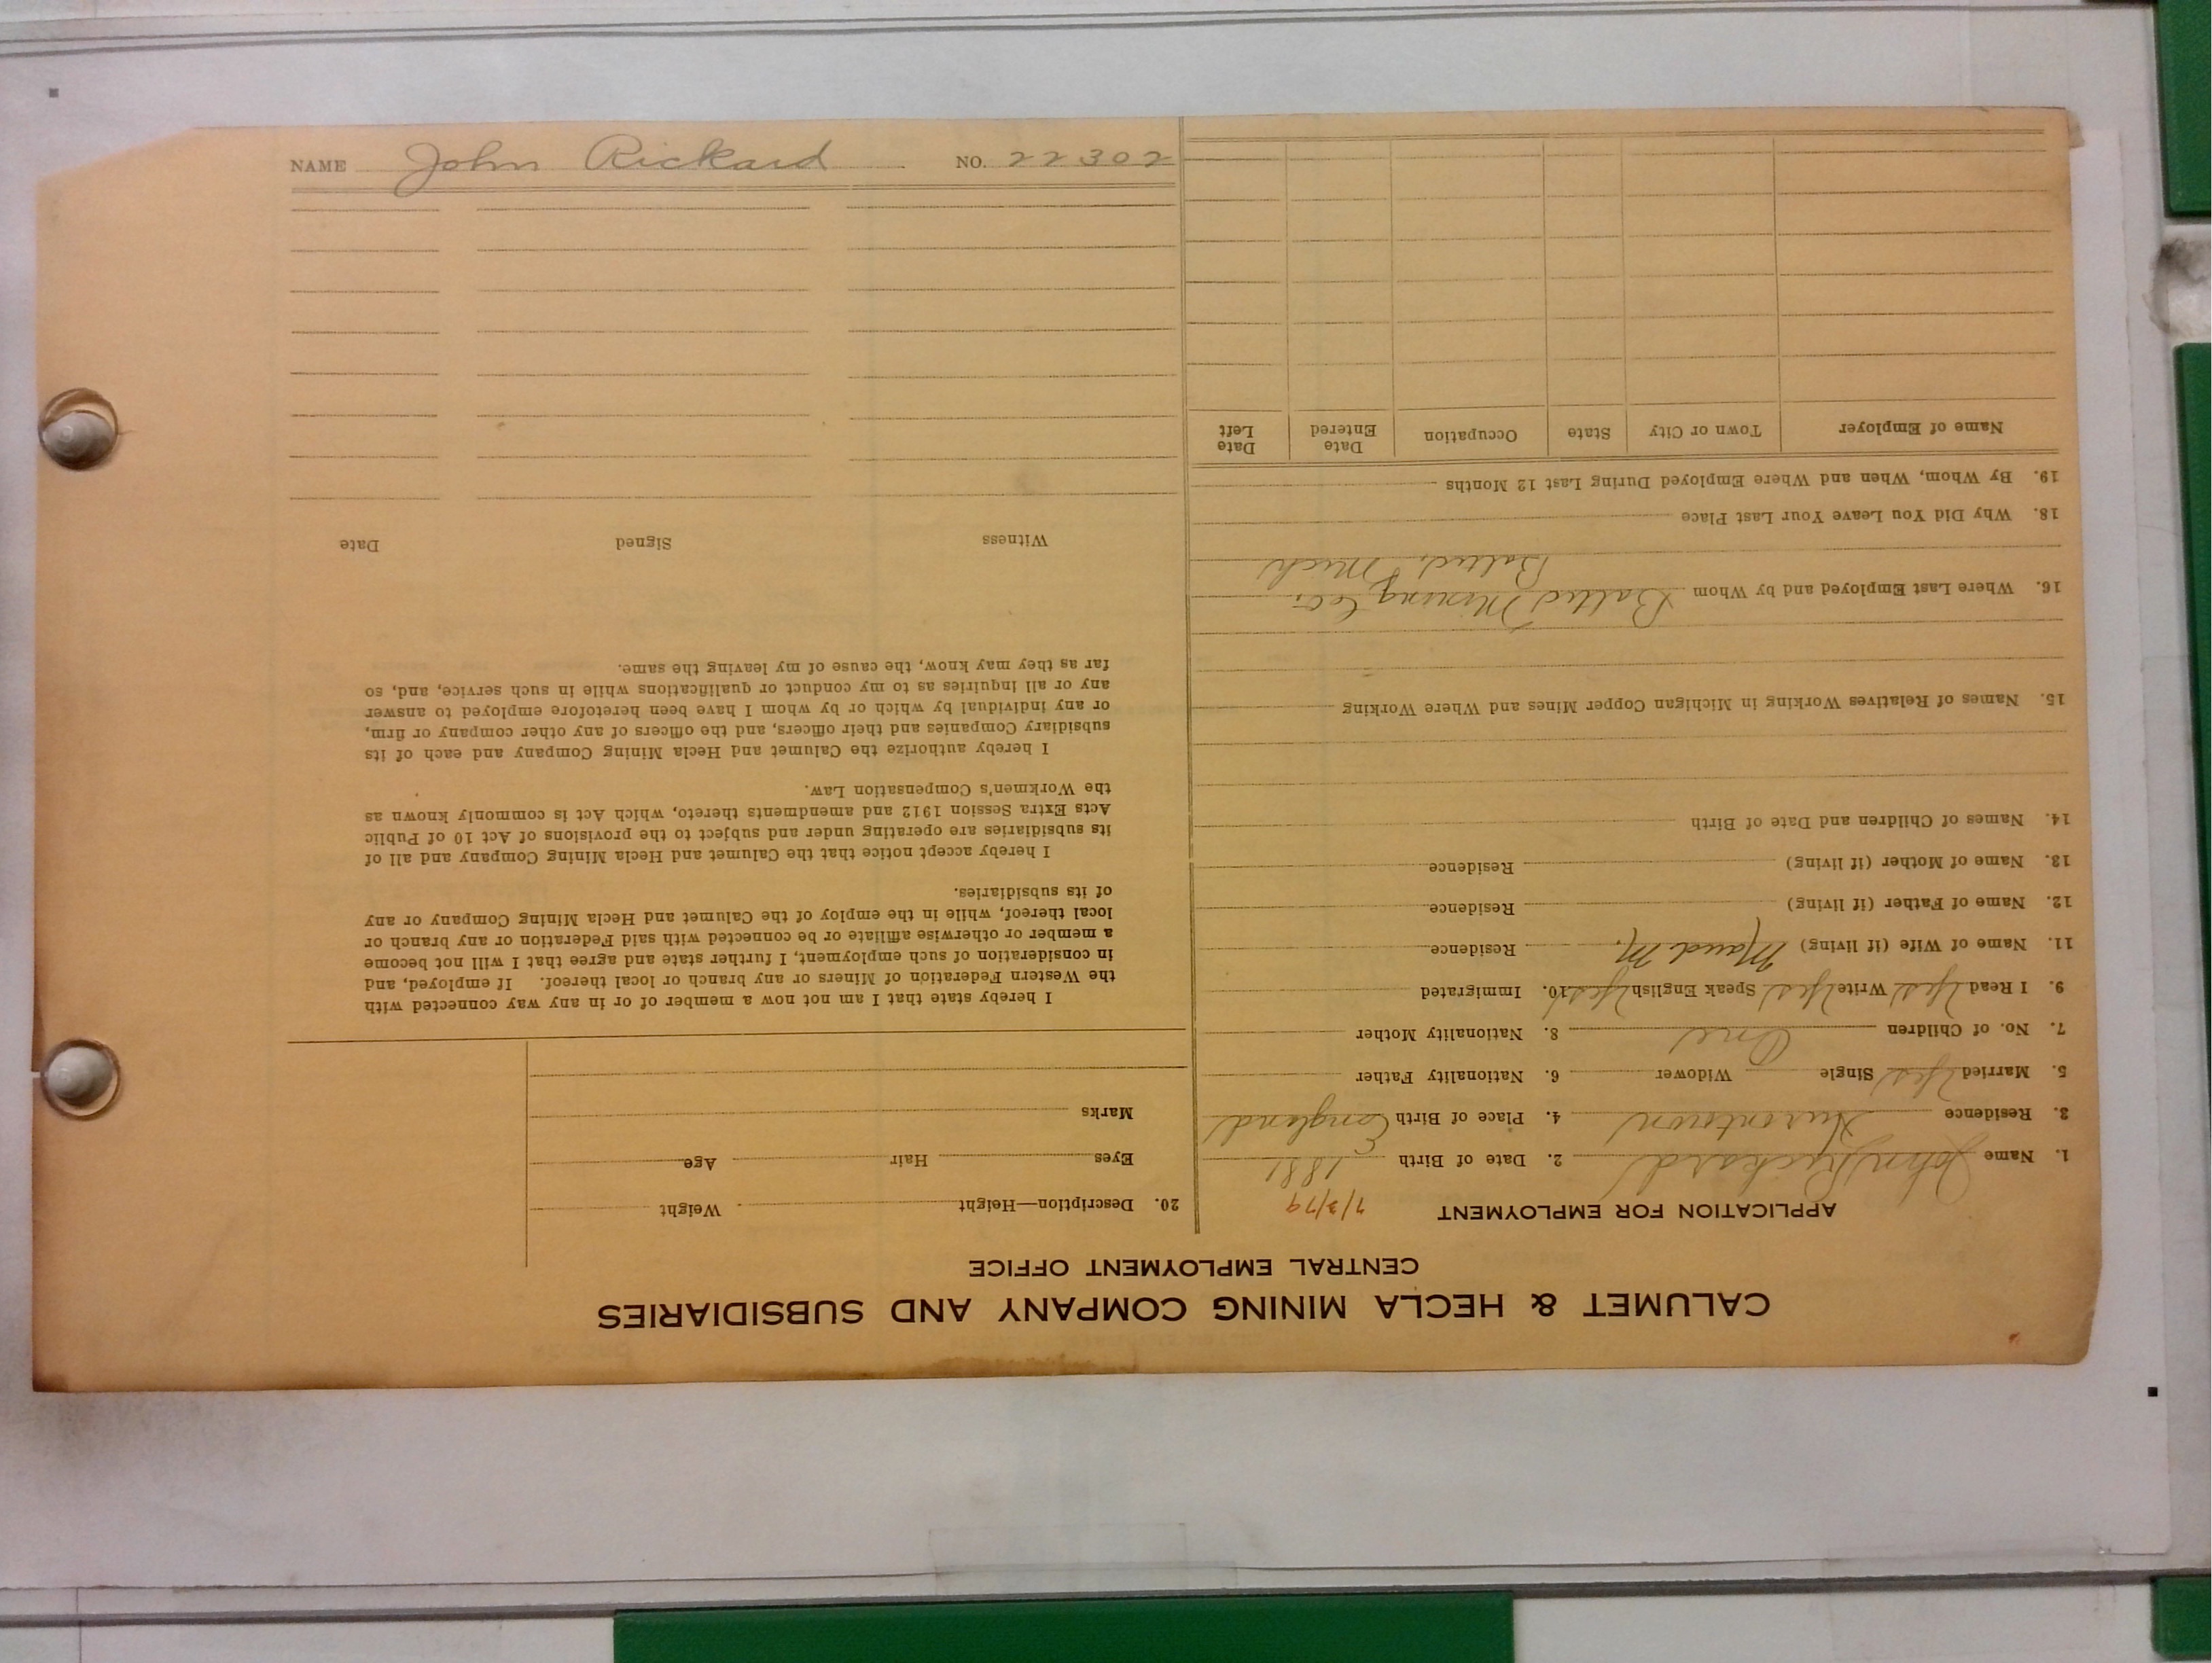 CALUMET & HECLA MINING COMPANY AND SUBSIDIARIES
CENTRAL EMPLOYMENT OFFICE
APPLICATION FOR EMPLOYMENT 7/3/79
1. Name John Rickard 2. Date of Birth 1881
3. Residence Hurontown 4. Place of Birth England
5. Married Yes Single Widower 6. Nationality Father
7. No. of Children One 8. Nationality Mother
9. I Read Yes Write Yes Speak English Yes 10. Immigrated
11. Name of Wife (if living) Maud M. Residence
12. Name of Father (if living) Residence
13. Name of Mother (if living) Residence
14. Names of Children and Date of Birth
15. Names of Relatives Working in Michigan Copper Mines and Where Working
16. Where Last Employed and by Whom Baltic Mining Co.
Baltic, Mich
18. Why Did You Leave Your Last Place
19. By Whom, When and Where Employed During Last 12 Months
Name of Employer Town or City State Occupation Date Entered Date Left
20. Description—Height Weight
Eyes Hair Age
Marks
I hereby state that I am not now a member of or in any way connected with
the Western Federation of Miners or any branch or local thereof. If employed, and
in consideration of such employment, I further state and agree that I will not become
a member or otherwise affiliate or be connected with said Federation or any branch or
local thereof, while in the employ of the Calumet and Hecla Mining Company or any
of its subsidiaries.
I hereby accept notice that the Calumet and Hecla Mining Company and all of
its subsidiaries are operating under and subject to the provisions of Act 10 of Public
Acts Extra Session 1912 and amendments thereto, which Act is commonly known as
the Workmen's Compensation Law.
I hereby authorize the Calumet and Hecla Mining Company and each of its
subsidiary Companies and their officers, and the officers of any other company or firm,
or any individual by which or by whom I have been heretofore employed to answer
any or all inquiries as to my conduct or qualifications while in such service, and, so
far as they may know, the cause of my leaving the same.
Witness Signed Date
NAME John Rickard NO. 22302